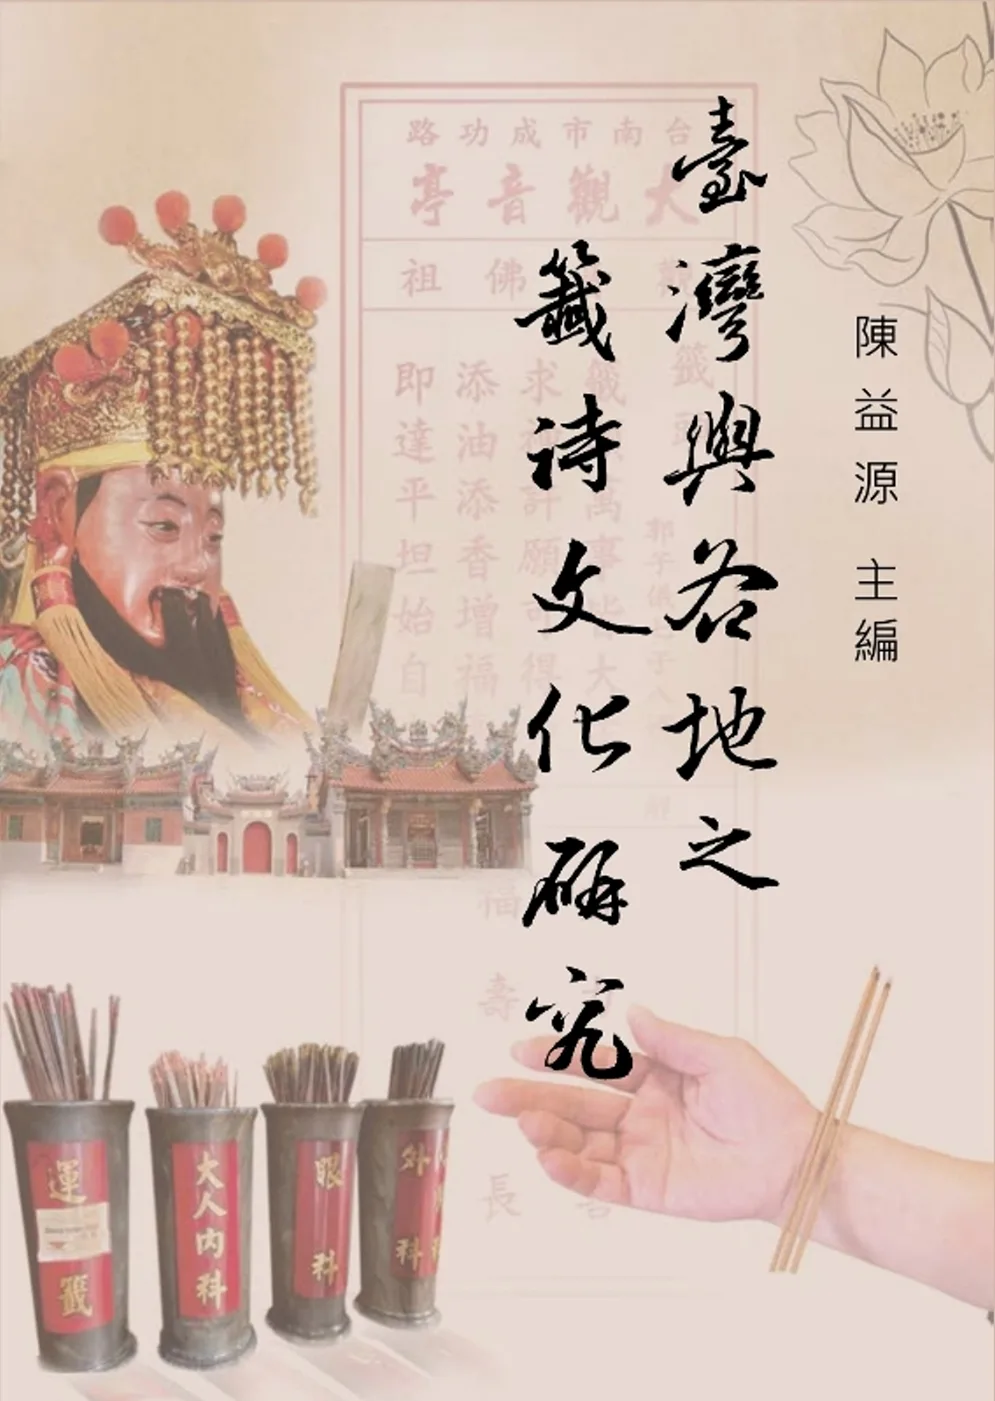 臺灣與各地之
籤詩文化研究
陳益源 主編
台南市成功路
大觀音亭
佛祖
籤頭
郭子儀
求神許願
添油添香增福
即達平坦始自
解
福
壽
長
運
籤
大人內科
眼科
外科